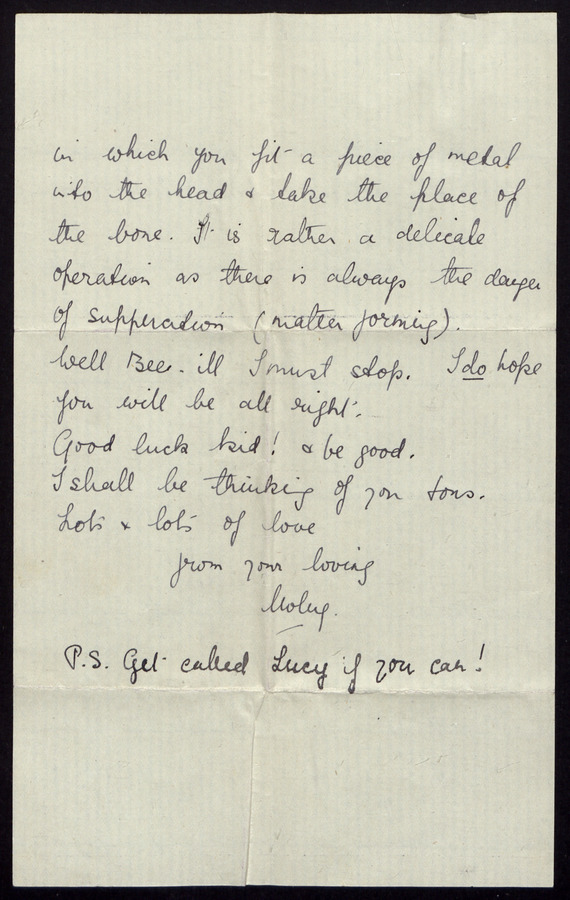 in which you fit a piece of metal
into the head & take the place of
the bone. It is rather a delicate
operation as there is always the danger
of suppuration (matter forming).
Well Bee. ill I must stop. I do hope
you will be all right.
Good luck kid! & be good.
I shall be thinking of you tons.
Lots & lots of love
from your loving
P.S. Get called Lucy if you can!